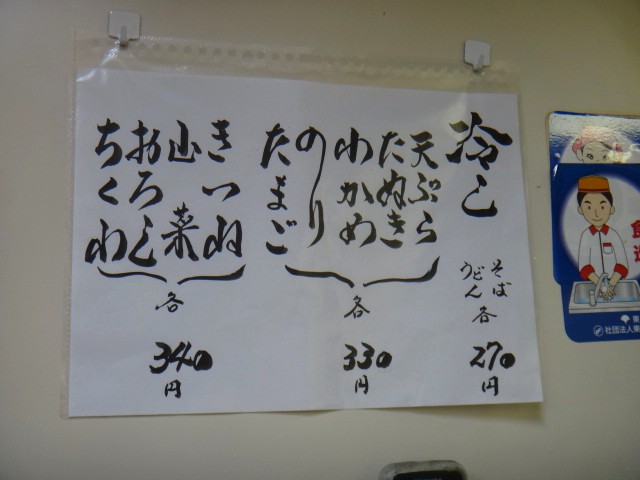 冷し
そば
うどん 各
270
円
天ぷら
たぬき
わかめ
のり
たまご
各
330
円
きつね
山菜
おろし
ちくわ
各
340
円
社団法人東